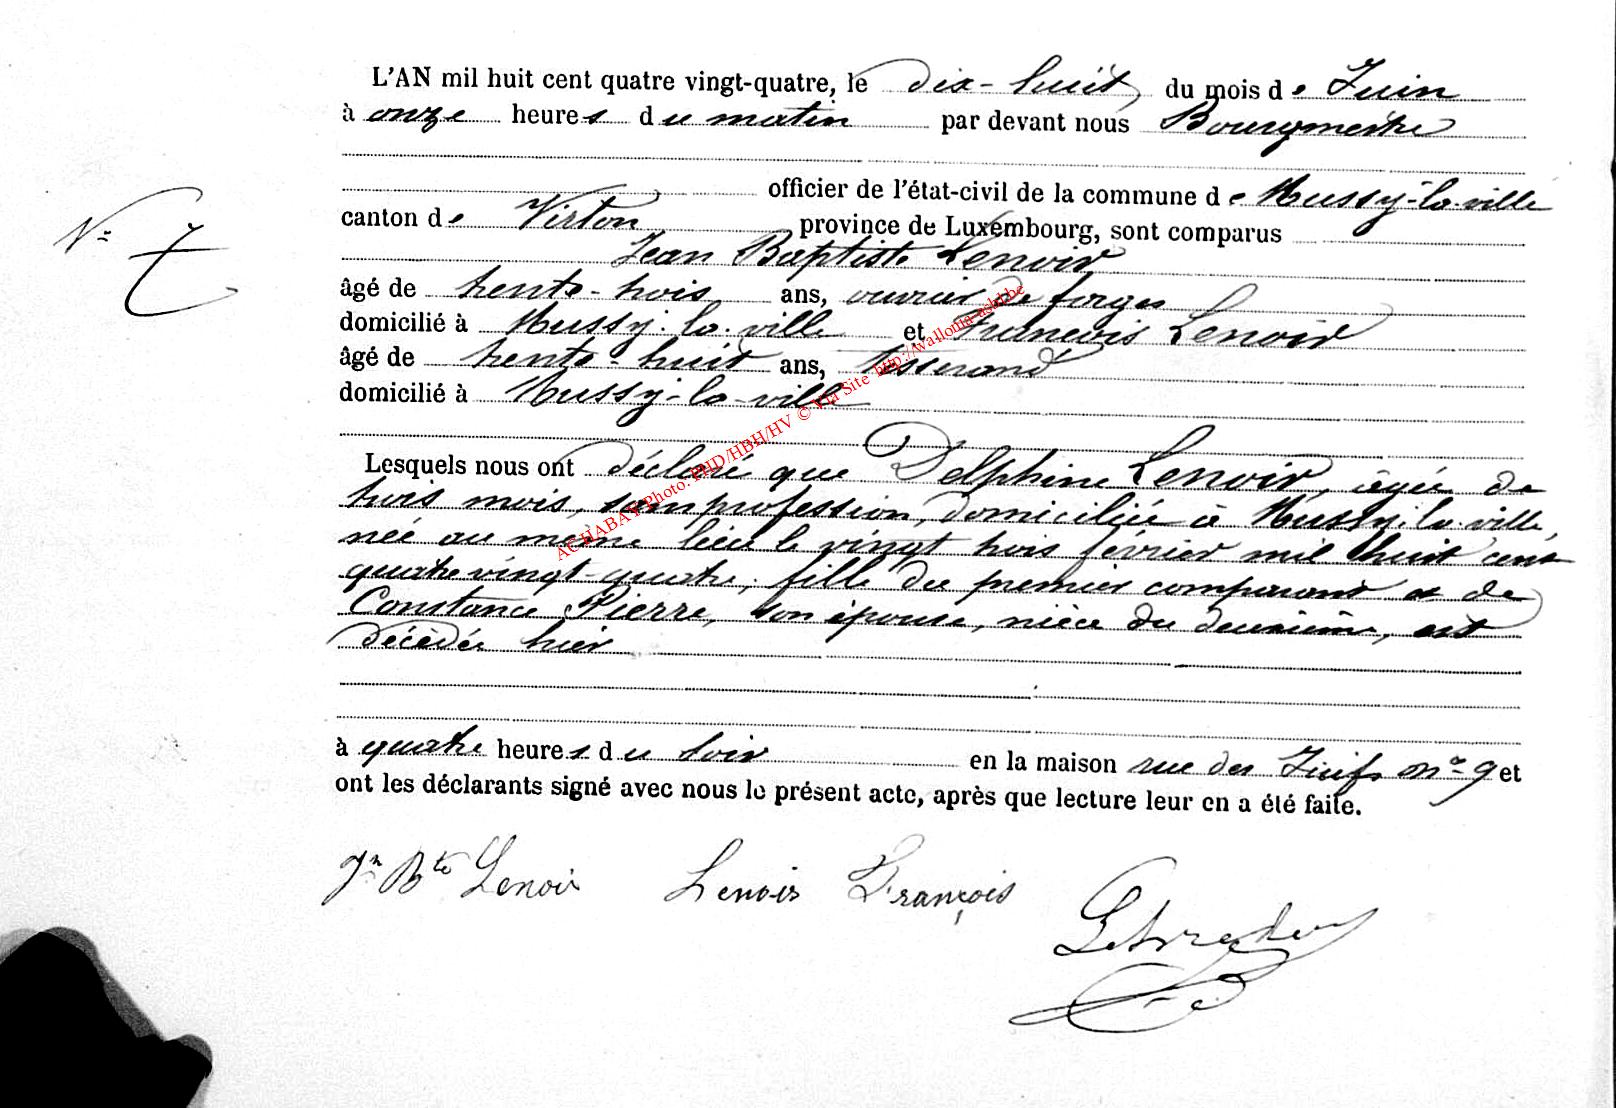 L'AN mil huit cent quatre vingt-quatre, le dix-huit du mois de Juin
à onze heures du matin par devant nous Bourgmestre
officier de l'état-civil de la commune de Mussy-la-ville
N° 7
canton de Virton province de Luxembourg, sont comparus
Jean Baptiste Lenoir
âgé de trente-trois ans, ouvrier de forges
domicilié à Mussy-la-ville et Francois Lenoir
âgé de trente-huit ans, tisserand
domicilié à Mussy-la-ville
Lesquels nous ont déclaré que Delphine Lenoir, âgée de
trois mois, sans profession, domiciliée à Mussy-la-ville,
née au même lieu le vingt trois février mil huit cent
quatre vingt-quatre, fille du premier comparant et de
Constance Pierre, son épouse, nièce du deuxième, est
décédée hier
à quatre heures du soir en la maison rue des Juifs n° 9 et
ont les déclarants signé avec nous le présent acte, après que lecture leur en a été faite.
Jn Bte Lenoir Lenoir François
AG HABAY Photo: PHD/HBH/HV © Via Site http://wallonia-asbl.be